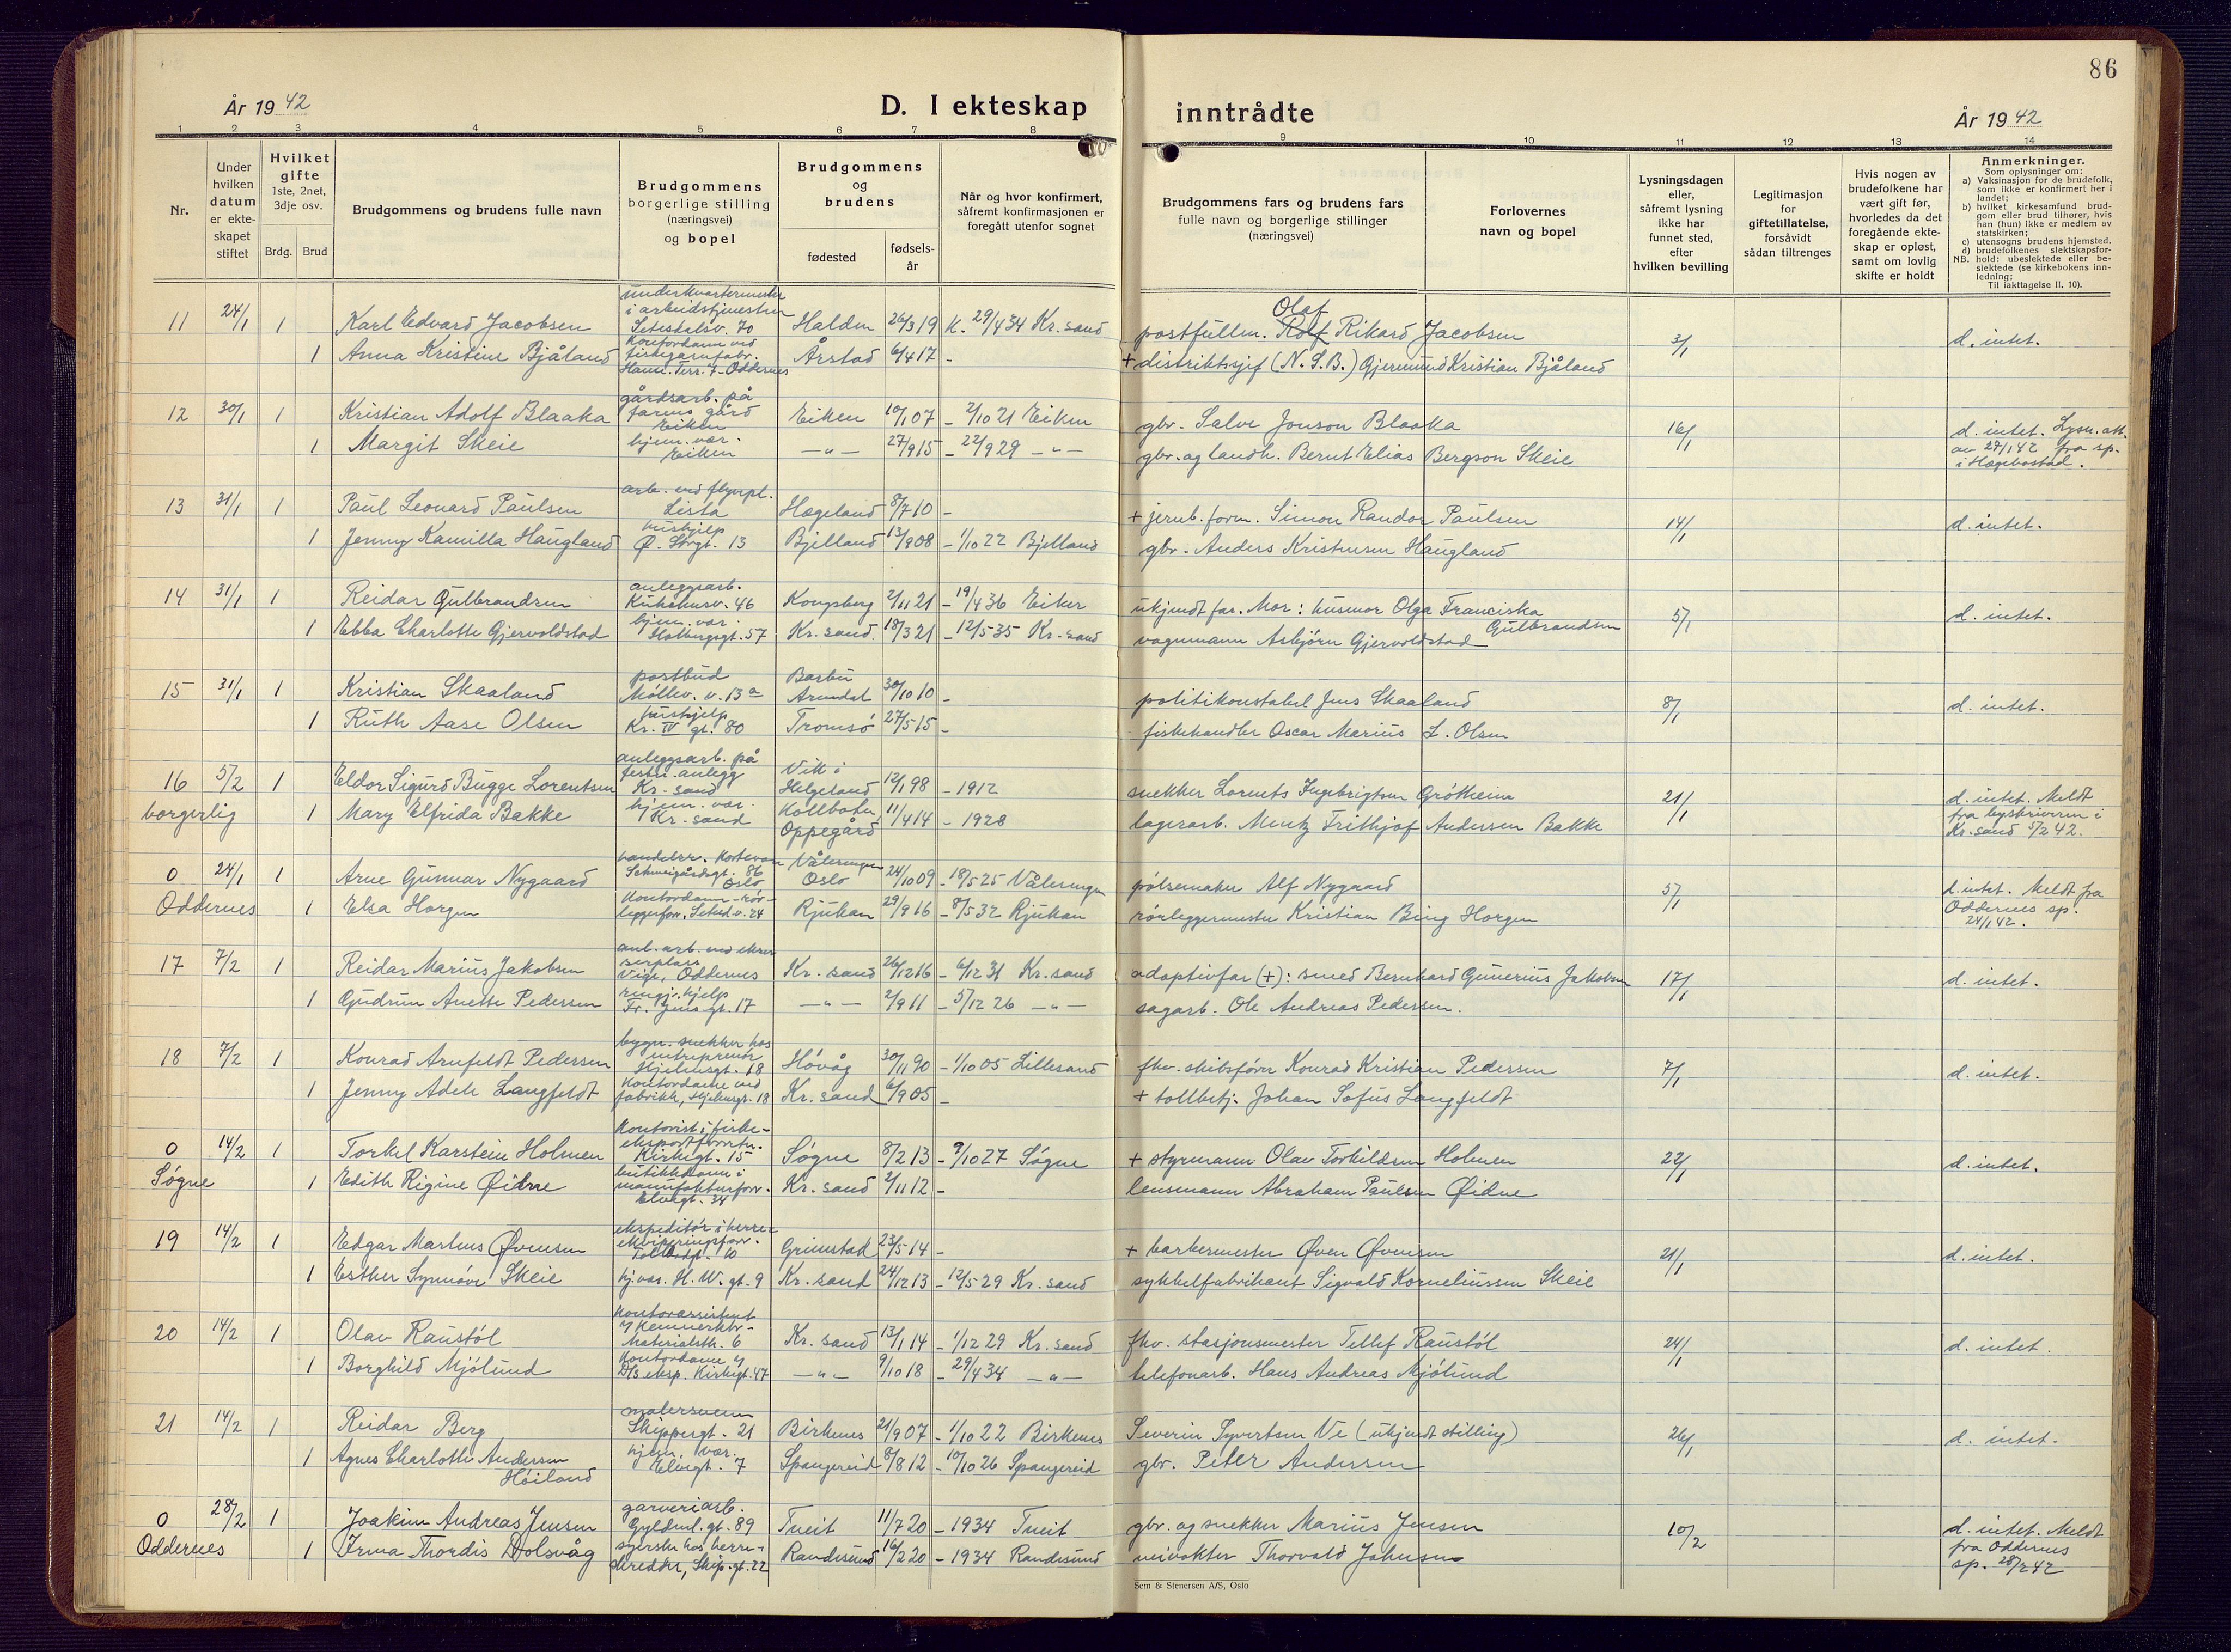 86
År 19 42
D. I ekteskap
inntrådte
År 19 42
1 2 3 4 5 6 7 8 9 10 11 12 13 14
Nr.
Under hvilken datum er ekte-skapet stiftet
Hvilket gifte 1ste, 2net, 3dje osv.
Brdg. Brud
Brudgommens og brudens fulle navn
Brudgommens borgerlige stilling (næringsvei) og bopel
Brudgommens og brudens
fødested
fødsels-år
Når og hvor konfirmert, såfremt konfirmasjonen er foregått utenfor sognet
Brudgommens fars og brudens fars fulle navn og borgerlige stillinger (næringsvei)
Forlovernes navn og bopel
Lysningsdagen eller, såfremt lysning ikke har funnet sted, efter hvilken bevilling
Legitimasjon for giftetillatelse, forsåvidt sådan tiltrenges
Hvis nogen av brudefolkene har vært gift før, hvorledes da det foregående ekte-skap er opløst, samt om lovlig skifte er holdt
Anmerkninger.
Som oplysninger om:
a) Vaksinasjon for de brudefolk, som ikke er konfirmert her i landet;
b) hvilket kirkesamfund brud-gom eller brud tilhører, hvis han (hun) ikke er medlem av statskirken;
c) utensogns brudens hjemsted.
d) brudefolkenes slektskapsfor-hold: ubeslektede eller be-slektede (se kirkebokens inn-ledning;
NB.
Til iakttagelse II, 10).
11 24/1 1 Karl Edvard Jacobsen i arbeidstjenesten Setesdalsv. 70 Halden 26/3 19 K. 29/4 34 Kr. sand postfullm. Olaf Rikard Jacobsen 3/1 d. intet.
1 Anna Kristine Bjåland Kontordame ved fiskegarnfabr. Oddernes Årstad 6/4 17 - + distriktssjef (N.S.B.) Gjermund Kristian Bjåland
12 30/1 1 Kristian Adolf Blaaka gårdsarb. på farens gård Eiken Eiken 10/1 07 - 2/10 21 Eiken gbr. Salve Jonson Blaaka 16/1 d. intet. Lysn. att. av 27/1 42 fra sp. i Hægebostad.
1 Margit Skeie hjem. vær. Eiken -"- 27/9 15 - 22/9 29 -"- gbr. og landh. Bernt Elias Bergson Skeie
13 31/1 1 Paul Leonard Paulsen arb. ved flypl. Lista Hægeland 8/7 10 - + jernb. form. Simon Randor Paulsen 14/1 d. intet.
1 Jenny Kamilla Haugland hushjelp Ø. Strgt. 13 Bjelland 13/8 08 - 1/10 22 Bjelland gbr. Anders Kristensen Haugland
14 31/1 1 Reidar Gulbrandsen anleggsarb. Kuholmsv. 46 Kongsberg 2/11 21 - 19/4 36 Eiker ukjendt far. Mor: husmor Olga Franciska Gulbrandsen 5/1 d. intet.
1 Ebba Charlotte Gjervoldstad hjem. vær. Holbergsgt. 57 Kr. sand. 18/3 21 - 12/5 35 Kr. sand vognmann Asbjörn Gjervoldstad
15 31/1 1 Kristian Skaaland postbud Möllev. v. 13a Barbu Arendal 30/10 10 - politikonstabel Jens Skaaland 8/1 d. intet.
1 Ruth Aase Olsen hushjelp Kr. IV gt. 80 Tromsö 27/5 15 - fiskehandler Oscar Marius L. Olsen
16 5/2 1 Eldor Sigurd Bugge Lorentsen anleggsarb. på festn. anlegg Kr. sand Vik i Helgeland 12/1 98 - 1912 snekker Lorents Ingebrigtsen Grötheim 21/1 d. intet. Meldt fra byskriveren i Kr. sand 5/2 42.
borgerlig 1 Mary Elfrida Bakke hjem. vær. Kr. sand Kollbotn Oppegård 11/4 14 - 1928 lagerarb. Mentz Frithjof Andersen Bakke
0 24/1 1 Arne Gunnar Nygaard Schweigårdsgt. 86 Oslo Vålerengen Oslo 24/10 09 - 18/5 25 Vålerengen pölsemaker Alf Nygaard 5/1 d. intet. Meldt fra Oddernes sp. 24/1 42.
Oddernes 1 Elsa Horgen Kontordame - rör-leggerforr. Setesd.v. 24 Rjukan 29/9 16 - 8/5 32 Rjukan rörleggermester Kristian Bing Horgen
17 7/2 1 Reidar Marius Jakobsen Vige, Oddernes Kr. sand 26/12 16 - 6/12 31 Kr. sand adoptivfar (+): smed Bernhard Gunerius Jakobsen 17/1 d. intet.
1 Gudrun Anette Pedersen rengj. hjelp Tr. Jens gt. 17 -"- 2/9 11 - 5/12 26 -"- sagarb. Ole Andreas Pedersen.
18 7/2 1 Konrad Arnfeldt Pedersen bygn. snekker hos entreprenör Hjelmsgt. 18 Hövåg 30/11 90 - 1/10 05 Lillesand fhv. skibsförer Konrad Kristian Pedersen 7/1 d. intet.
1 Jenny Adele Langfeldt Kontordame ved fabrikk, Hjelmsgt. 18 Kr. sand 6/9 05 - + tollbetj. Johan Sofus Langfeldt
0 14/2 1 Torkel Karstein Holmen Kontorist i fiske-eksportforretn. Kirkegt. 15 Sögne 8/2 13 - 9/10 27 Sögne + styrmann Olav Torkildsen Holmen 22/1 d. intet.
Sögne 1 Edith Rigine Øidne butikkdame i manufakturforr. Elvegt. 34 Kr. sand 2/11 12 - lensmann Abraham Paulsen Øidne
19 14/2 1 Edgar Martens Øvensen ekspeditör i herre-ekviperingsforr. Tollbodgt. 10 Grimstad 23/5 14 - + barbermester Øven Øvensen 21/1 d. intet.
1 Esther Synnöve Skeie hj. vær. H. W. gt. 9 Kr. sand 24/12 13 - 12/5 29 Kr. sand sykkelfabrikant Sigvald Korneliussen Skeie
20 14/2 1 Olav Raustöl Kontorassistent Materialstk. 6 Kr. sand 13/1 14 - 1/12 29 Kr. sand fhv. stasjonsmester Tellef Raustöl 24/1 d. intet.
1 Borghild Mjölund Kontordame D/S eksp. Kirkegt. 47 -"- 9/10 18 - 29/4 34 -"- telefonarb. Hans Andreas Mjölund
21 14/2 1 Reidar Berg malersvenn Skippergt. 21 Birkenes 21/9 07 - 1/10 22 Birkenes Severin Syvertsen Ve (ukjendt stilling) 26/1 d. intet.
1 Agnes Charlotte Andersen Höiland hjem. vær. Elvegt. 7 Spangereid 8/8 12 - 10/10 26 Spangereid gbr. Peter Andersen
0 28/2 1 Joakim Andreas Jensen garveriarb. Gyldenl. gt. 89 Tveit 11/7 20 - 1934 Tveit gbr. og snekker Marius Jensen 10/2 d. intet. Meldt fra Oddernes sp. 28/2 42
Oddernes 1 Irma Thordis Dolsvåg syerske hos herre-skredder, Skip. gt. 22 Randesund 16/2 20 - 1934 Randesund veivokter Thorvald Johnsen
Sem & Stenersen A/S, Oslo